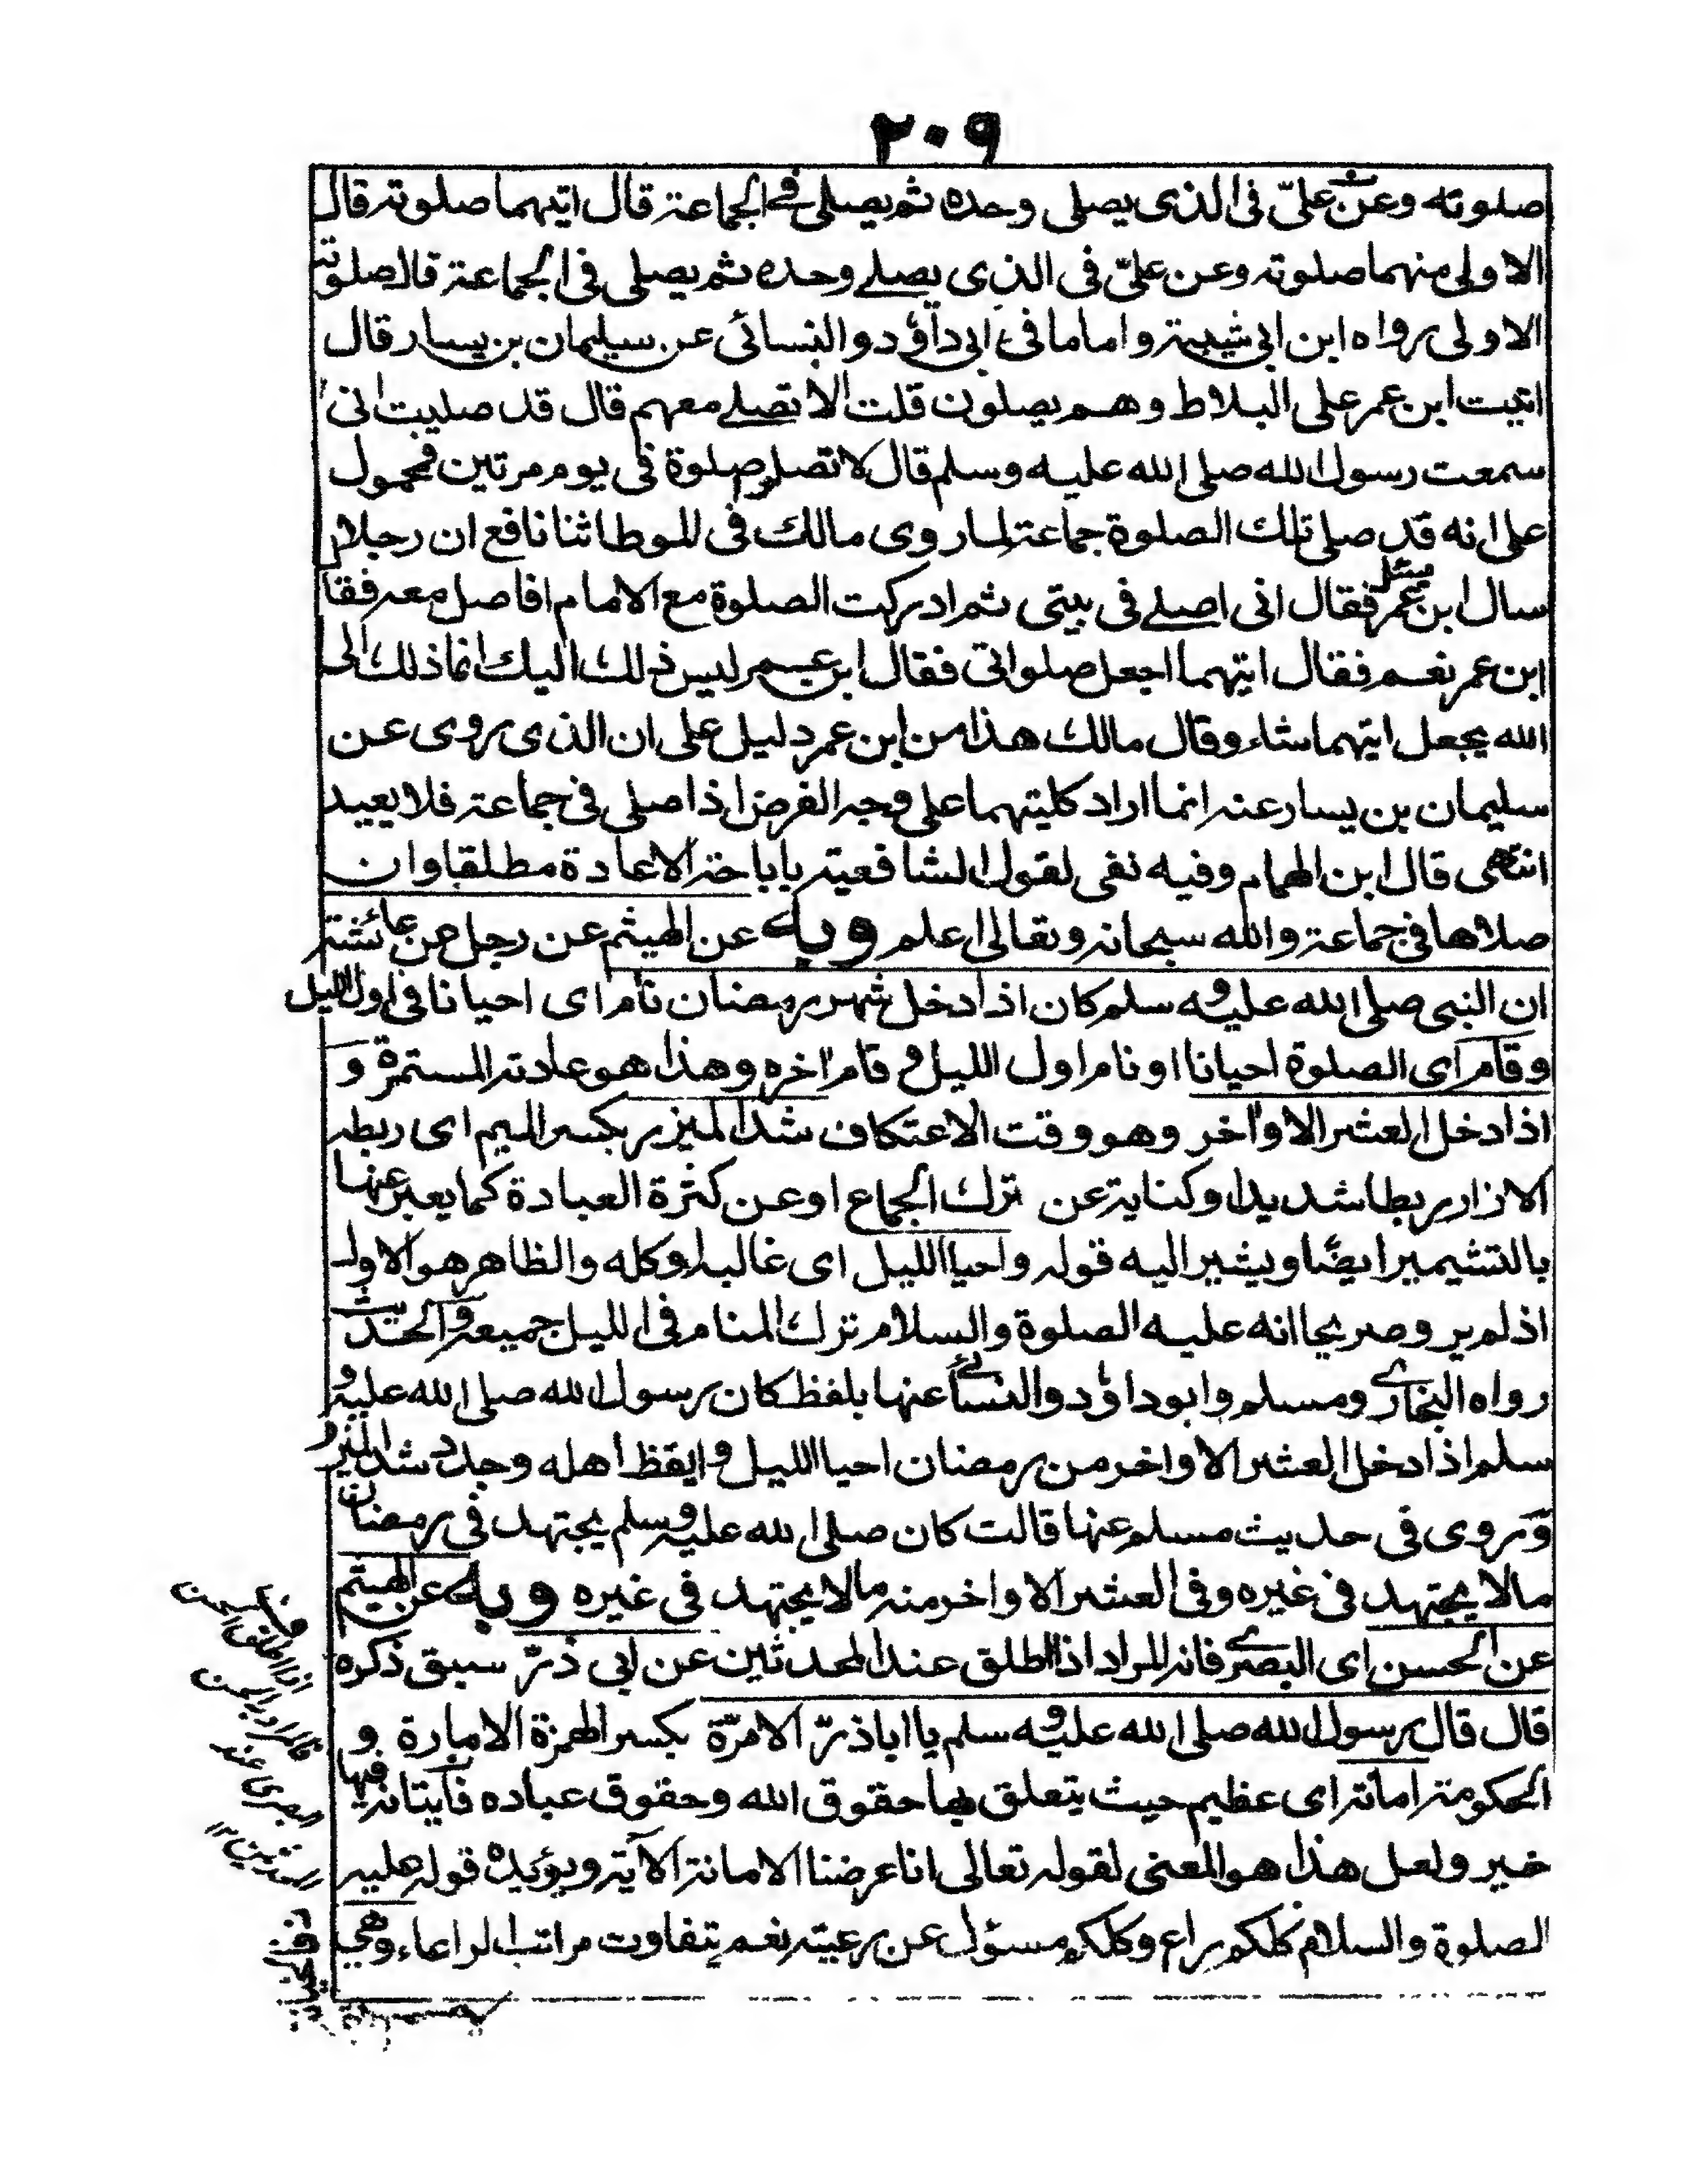 ٢٠٩
صلوته وعن علىّ فى الذى يصلى وحده ثم يصلى فى الجماعة قال ايتهما صلوته قال
الاولى منهما صلوته وعن علىّ فى الذى يصلے وحده ثم يصلى فى الجماعة قال صلوته
الاولى رواه ابن ابى شيبة واما ما فى ابى داؤد والنسائى عن سليمان بن يسار قال
اتيت ابن عمر على البلاط وهم يصلون قلت الا تصلے معهم قال قد صليت انى
سمعت رسول الله صلى الله عليه وسلم قال لا تصلوا صلوة فى يوم مرتين فمحمول
على انه قد صلى تلك الصلوة جماعة لما روى مالك فى الموطا ثنا نافع ان رجلا
سال ابن عمر فقال انى اصلے فى بيتى ثم ادركت الصلوة مع الامام افاصل معه فقا
ابن عمر نعم فقال ايتهما اجعل صلواتى فقال ابن عمر ليس ذلك اليك انما ذلك الى
الله يجعل ايتهما شاء وقال مالك هذا من ابن عمر دليل على ان الذى روى عن
سليمان بن يسار عنه انما اراد كليتهما على وجه الفرض اذا صلى فى جماعة فلا يعيد
انتهى قال ابن الهمام وفيه نفى لقول الشافعية باباحة الاعادة مطلقا وان
صلاها فى جماعة والله سبحانه وتعالى اعلم وبه عن الهيثم عن رجل عن عائشة
ان النبى صلى الله عليه وسلم كان اذا دخل شهر رمضان نام اى احيانا فى اول الليل
وقام اى الصلوة احيانا او نام اول الليل و قام اخره وهذا هو عادته المستمرة و
اذا دخل العشر الاواخر وهو وقت الاعتكاف شد الميزر بكسر الميم اى ربطه
الازار ربطا شديدا وكناية عن ترك الجماع او عن كثرة العبادة كما يعبر عنها
بالتشمير ايضًا ويشير اليه قوله واحيا الليل اى غالبه او كله والظاهر هو الاول
اذ لم يرو صريحا انه عليه الصلوة والسلام ترك المنام فى الليل جميعه والحديث
رواه البخارى ومسلم وابوداؤد والنسائى عنها بلفظ كان رسول الله صلى الله عليه و
سلم اذا دخل العشر الاواخر من رمضان احيا الليل وايقظ اهله وجد وشد الميزر
وروى فى حديث مسلم عنها قالت كان صلى الله عليه وسلم يجتهد فى رمضان
مالا يجتهد فى غيره وفى العشر الاواخر منه مالا يجتهد فى غيره وبه عن الهيثم
عن الحسن اى البصرى فانه المراد اذا اطلق عند المحدثين عن ابى ذرّ سبق ذكره
قال قال رسول الله صلى الله عليه وسلم يا اباذرّ الامرة بكسر الهمزة الامارة و
الحكومة امانة اى عظيم حيث يتعلق بها حقوق الله وحقوق عباده فايتانه فيها
خير ولعل هذا هو المعنى لقوله تعالى انا عرضنا الامانة الآية ويؤيده قوله عليه
الصلوة والسلام كلكم راع وكلكم مسؤل عن رعيته نعم يتفاوت مراتب الراعاء وهى